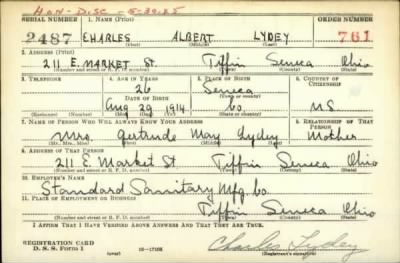 HON-DISC - 5-30-45
SERIAL NUMBER 1. NAME (Print) ORDER NUMBER
2487 CHARLES ALBERT LYDEY 761
(First) (Middle) (Last)
2. ADDRESS (Print)
211 E. MARKET St. Tiffin Seneca Ohio
(Number and street or R. F. D. number) (Town) (County) (State)
3. TELEPHONE 4. AGE IN YEARS 5. PLACE OF BIRTH 6. COUNTRY OF CITIZENSHIP
26 Seneca
DATE OF BIRTH (Town or county)
Aug 29 1914 Co U.S.
(Exchange) (No.) (Mo.) (Day) (Yr.) (State or country)
7. NAME OF PERSON WHO WILL ALWAYS KNOW YOUR ADDRESS 8. RELATIONSHIP OF THAT PERSON
Mrs. Gertrude May Lydey Mother
(Mr., Mrs., Miss) (First) (Middle) (Last)
9. ADDRESS OF THAT PERSON
211 E. Market St Tiffin Seneca Ohio
(Number and street or R. F. D. number) (Town) (County) (State)
10. EMPLOYER'S NAME
Standard Sanitary Mfg. Co
11. PLACE OF EMPLOYMENT OR BUSINESS
Tiffin Seneca Ohio
(Number and street or R. F. D. number) (Town) (County) (State)
I AFFIRM THAT I HAVE VERIFIED ABOVE ANSWERS AND THAT THEY ARE TRUE.
REGISTRATION CARD
D. S. S. Form 1 (over) 16-17105 Charles Lydey
(Registrant's signature)